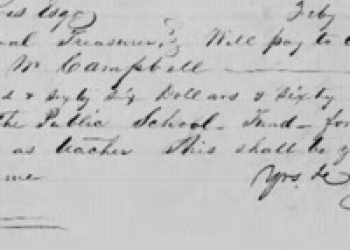 Esqr Feby
Treasurer, Will pay to
W Campbell
& Sixty Six Dollars & Sixty
the Public School Fund for
as teacher This shall be
Yrs &c